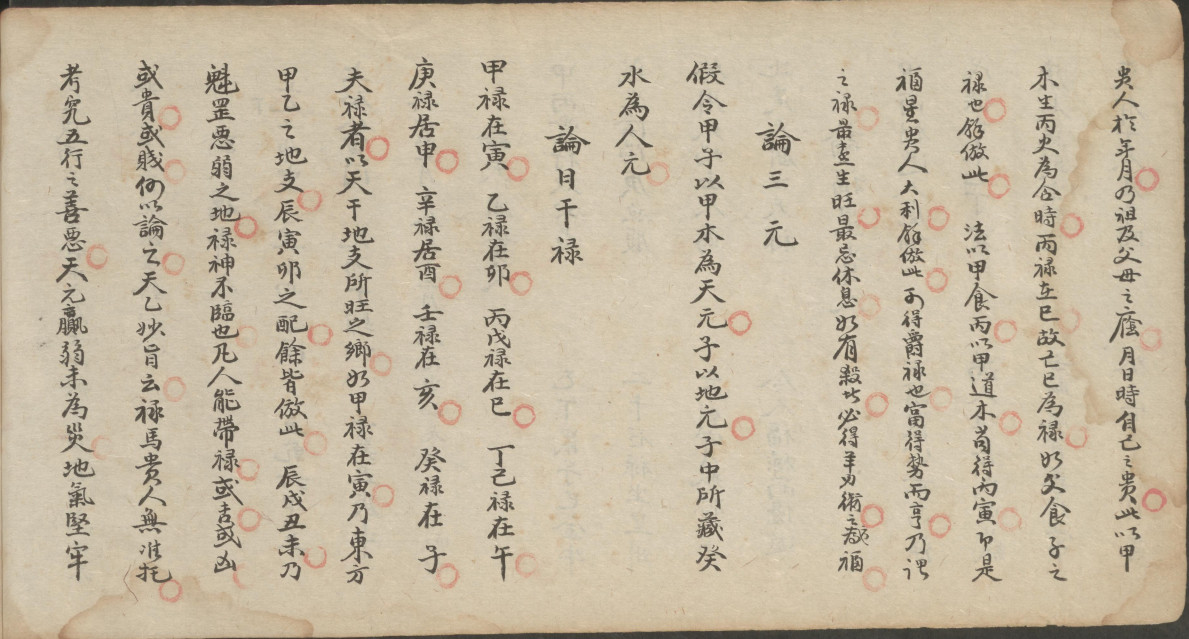 貴人於年月乃祖及父母之廕月日時自己之貴此以甲
木生丙火為食時丙禄在巳故亡巳為禄如父食子之
禄也餘倣此　法以甲食丙以甲遁木首得丙寅即是
福星貴人大利餘倣此 可得爵禄也富得勢而亨乃謂
之禄最喜生旺最忌休息如有殺此必得羊刃衛之福
論三元
假令甲子以甲木為天元子以地元子中所藏癸
水為人元
論日干禄
甲禄在寅　乙禄在卯　丙戊禄在巳　丁己禄在午
庚禄居申　辛禄居酉　壬禄在亥　癸禄在子
夫禄者以天干地支所旺之鄉如甲禄在寅乃東方
甲乙之地支辰寅卯之配餘皆倣此　辰戌丑未乃
魁罡悪弱之地禄神不臨也凡人能帶禄或吉或凶
或貴或賎何以論之天乙妙旨云禄馬貴人無准托
考究五行之善悪天元羸弱未為災地氣堅牢